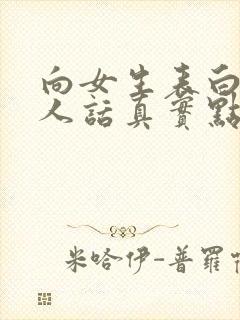 向女生表白
人話真實點
米哈伊-普羅